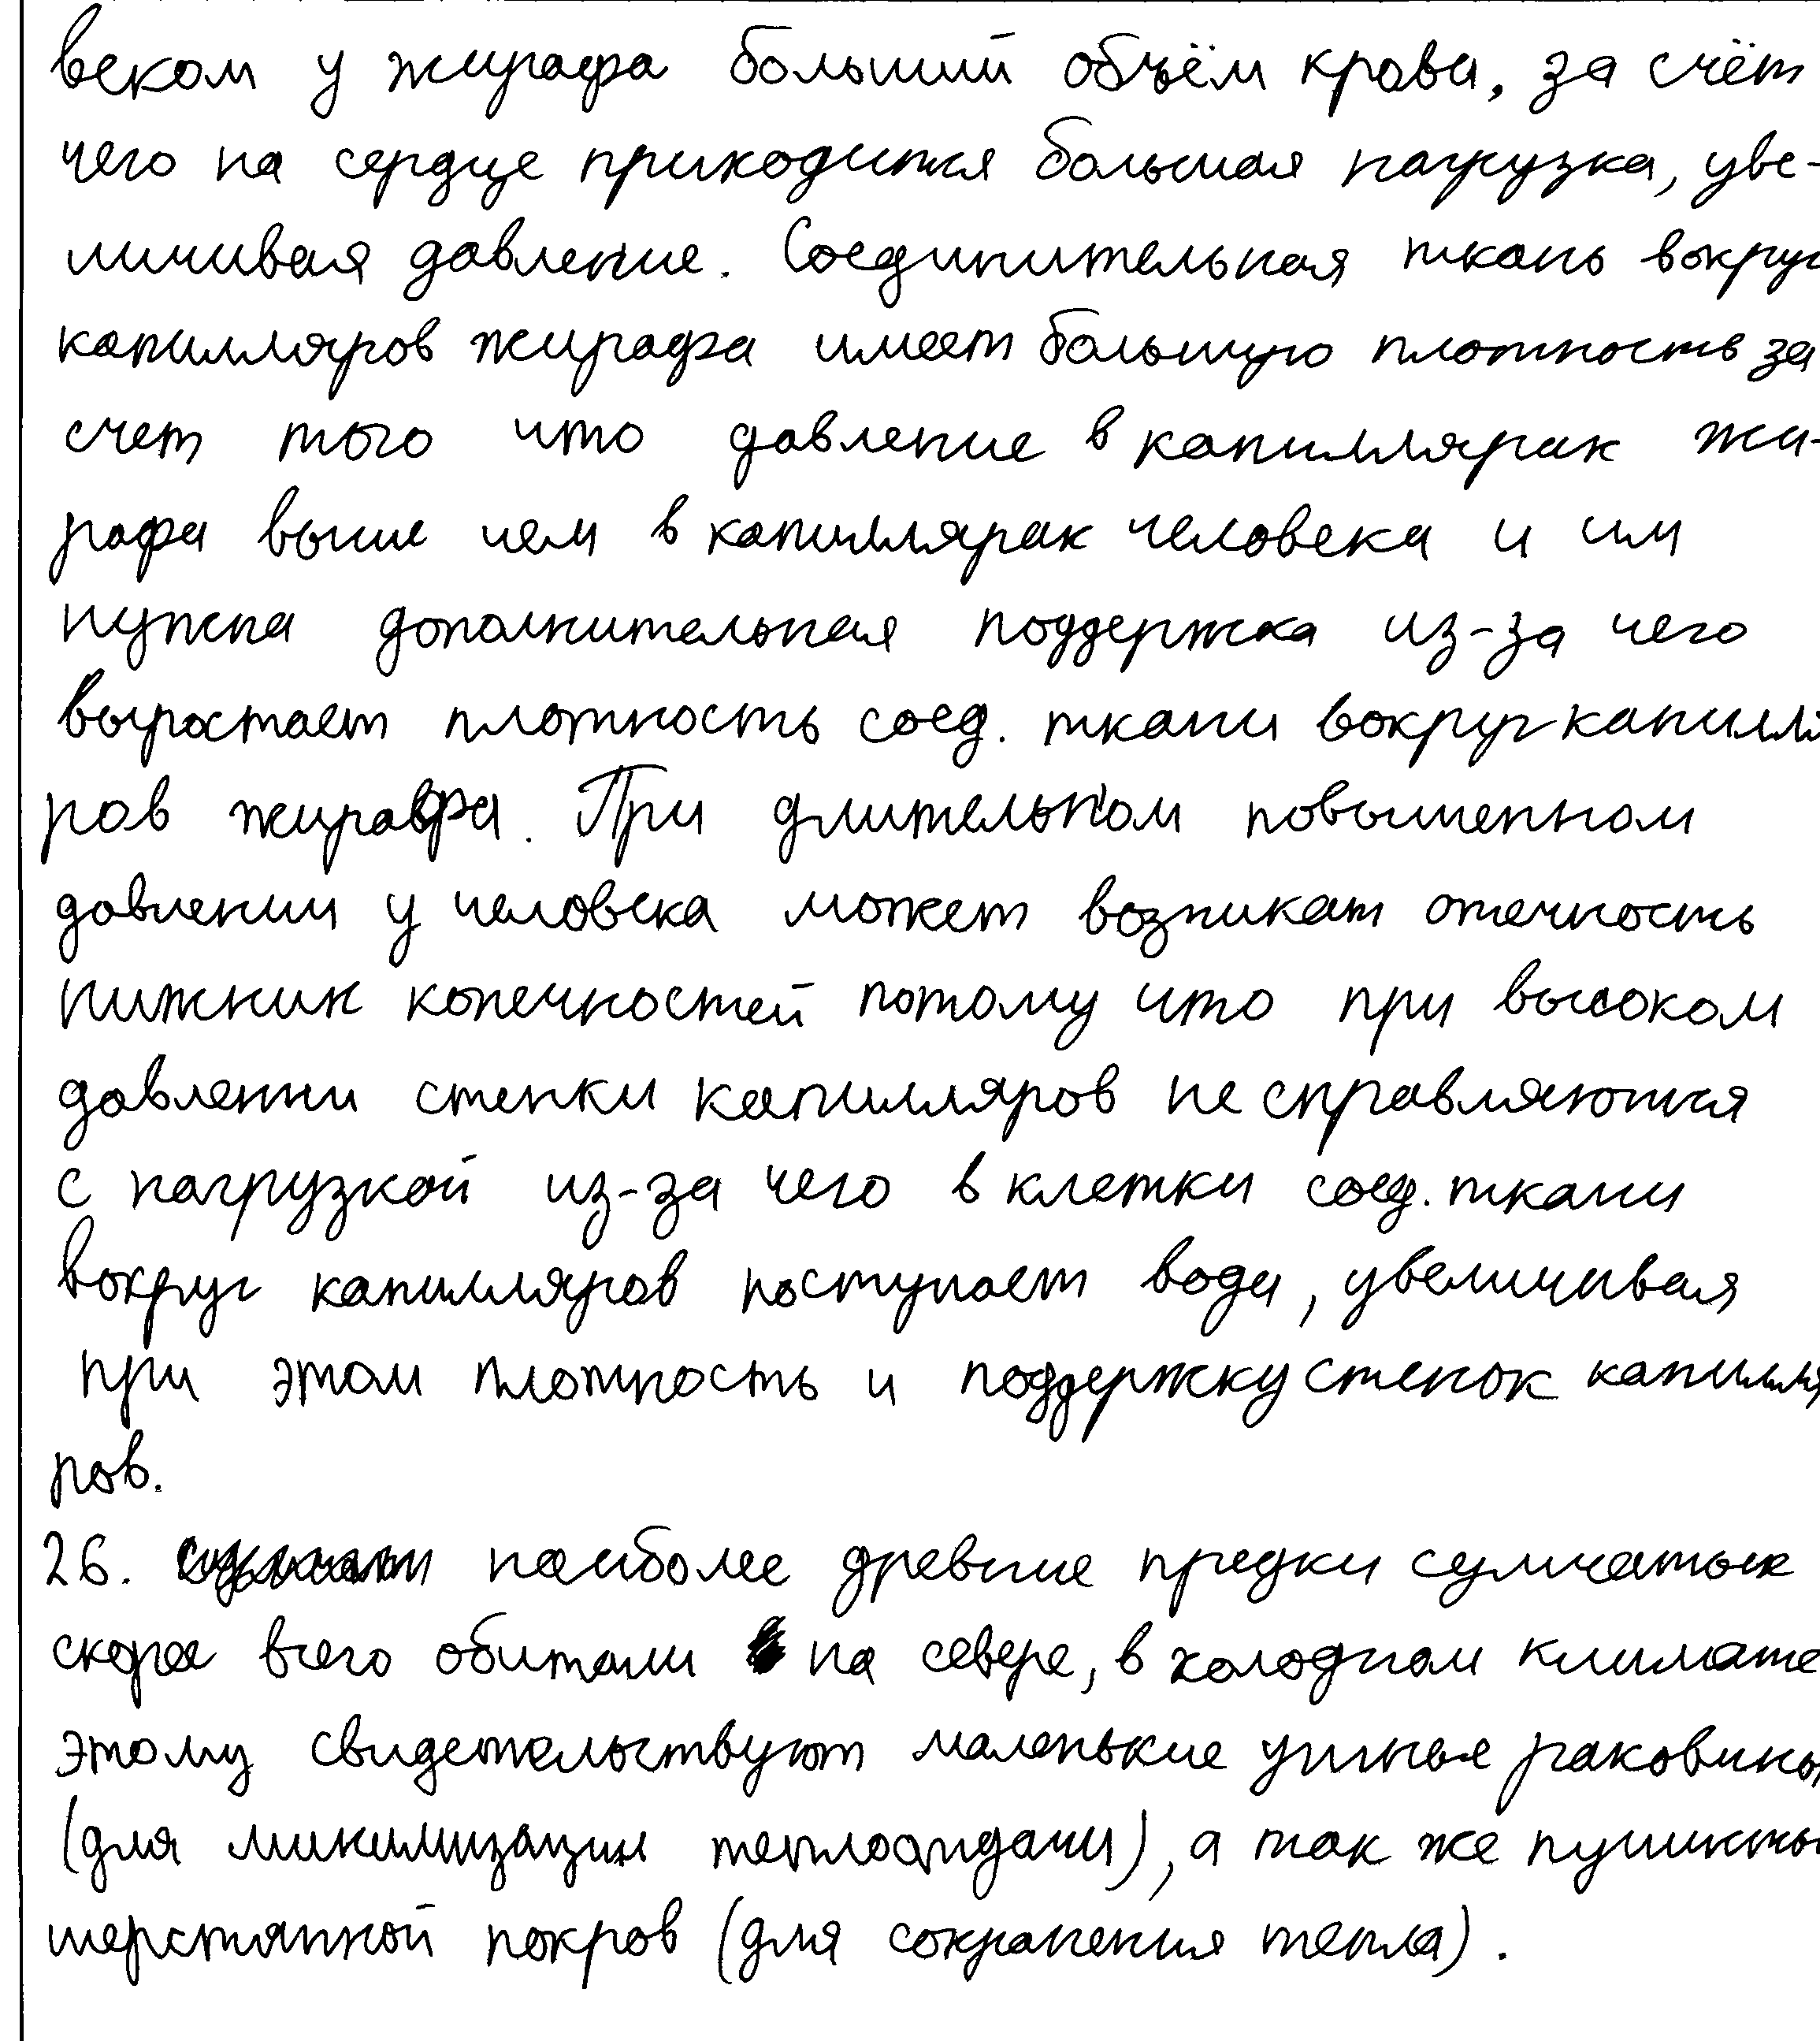 веком у жирафа больший объём крови, за счёт
чего на сердце приходится большая нагрузка, уве-
личивая давление. Соединительная ткань вокруг
капилляров жирафа имеет большую плотность за
счет того что давление в капиллярах жи-
рафа выше чем в капиллярах человека и им
нужна дополнительная поддержка из-за чего
выростает плотность соед. ткани вокруг капилля
ров жирафа. При длительном повышенном
давлении у человека может возникат отечность
нижних конечностей потому что при высоком
давлении стенки капилляров не справляются
с нагрузкой из-за чего в клетки соед. ткани
вокруг капилляров поступает вода, увеличивая
при этом плотность и поддержку стенок капилля
ров.
26. наиболее древние предки сумчатых
скорее всего обитали на севере, в холодном климате
этому свидетельствуют маленькие ушные раковины
(для минимизации теплоотдачи), а так же пушисты
шерстянной покров (для сохранения тепла).